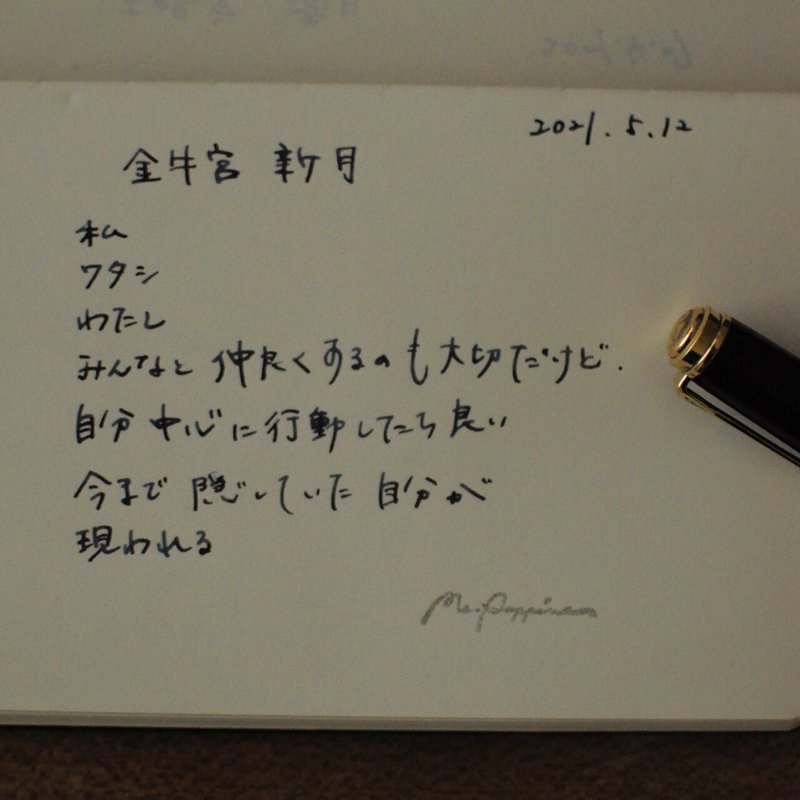 2021.5.12
金牛宮 新月
私
ワタシ
わたし
みんなと仲良くするのも大切だけど.
自分中心に行動したら良い
今まで隠していた自分が
現われる